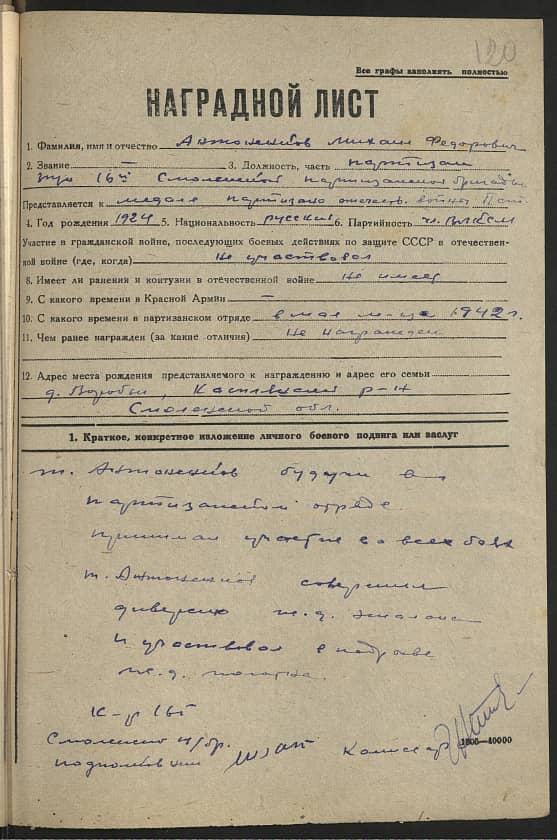 120
Все графы заполнять полностью
НАГРАДНОЙ ЛИСТ
1. Фамилия, имя и отчество Антоненков Михаил Федорович
2. Звание — 3. Должность, часть партизан
16й Смоленской партизанской бригады
Представляется к медали партизана отечеств. войны II ст.
4. Год рождения 1924 5. Национальность русский 6. Партийность чл. ВЛКСМ
Участие в гражданской войне, последующих боевых действиях по защите СССР в отечествен-
ной войне (где, когда) не участвовал
8. Имеет ли ранения и контузии в отечественной войне не имеет
9. С какого времени в Красной Армии —
10. С какого времени в партизанском отряде с мая м-ца 1942 г.
11. Чем ранее награжден (за какие отличия) не награжден
12. Адрес места рождения представляемого к награждению и адрес его семьи
д. Каспянский р-н
Смоленской обл.
1. Краткое, конкретное изложение личного боевого подвига или заслуг
т. Антоненков будучи в
партизанском отряде
принимал участие во всех боях
т. Антоненков совершил
диверсию ж.д. эшелона
и участвовал в подрыве
ж.д. полотна.
К-р 16й
Смоленской п/бр.
подполковник Комиссар
1806—10000